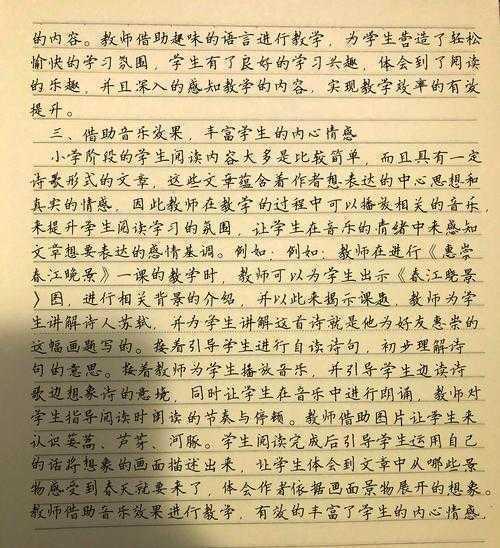 的内容。教师借助趣味的语言进行教学，为学生营造了轻松
愉快的学习氛围，学生有了良好的学习兴趣，体会到了阅读
的乐趣，并且深入的感知教学的内容，实现教学效率的有效
提升。
三、借助音乐效果，丰富学生的内心情感
小学阶段的学生阅读内容大多是比较简单，而且具有一定
诗歌形式的文章，这些文章蕴含着作者想表达的中心思想和
真实的情感，因此教师在教学的过程中可以播放相关的音乐，
来提升学生阅读学习的氛围，让学生在音乐的情绪中来感知
文章想要表达的感情基调。例如：例如：教师在进行《惠崇
春江晚景》一课的教学时，教师可以为学生出示《春江晚景
》图，进行相关背景的介绍，并以此来揭示课题，教师为学
生讲解诗人苏轼，并为学生讲解这首诗就是他为好友惠崇的
这幅画题写的。接着引导学生进行自读诗句，初步理解诗
句的意思。接着教师为学生播放音乐，并引导学生边读诗
歌边想象诗的意境，同时让学生在音乐中进行朗诵，教师对
学生指导阅读时阅读的节奏与停顿。教师借助图片让学生来
认识蒌蒿、芦芽、河豚。学生阅读完成后引导学生运用自己
的话将想象的画面描述出来，让学生体会到文章中从哪些景
物感受到春天就要来了，体会作者依据画面景物展开的想象。
教师借助音乐效果进行教学，有效的丰富了学生的内心情感。